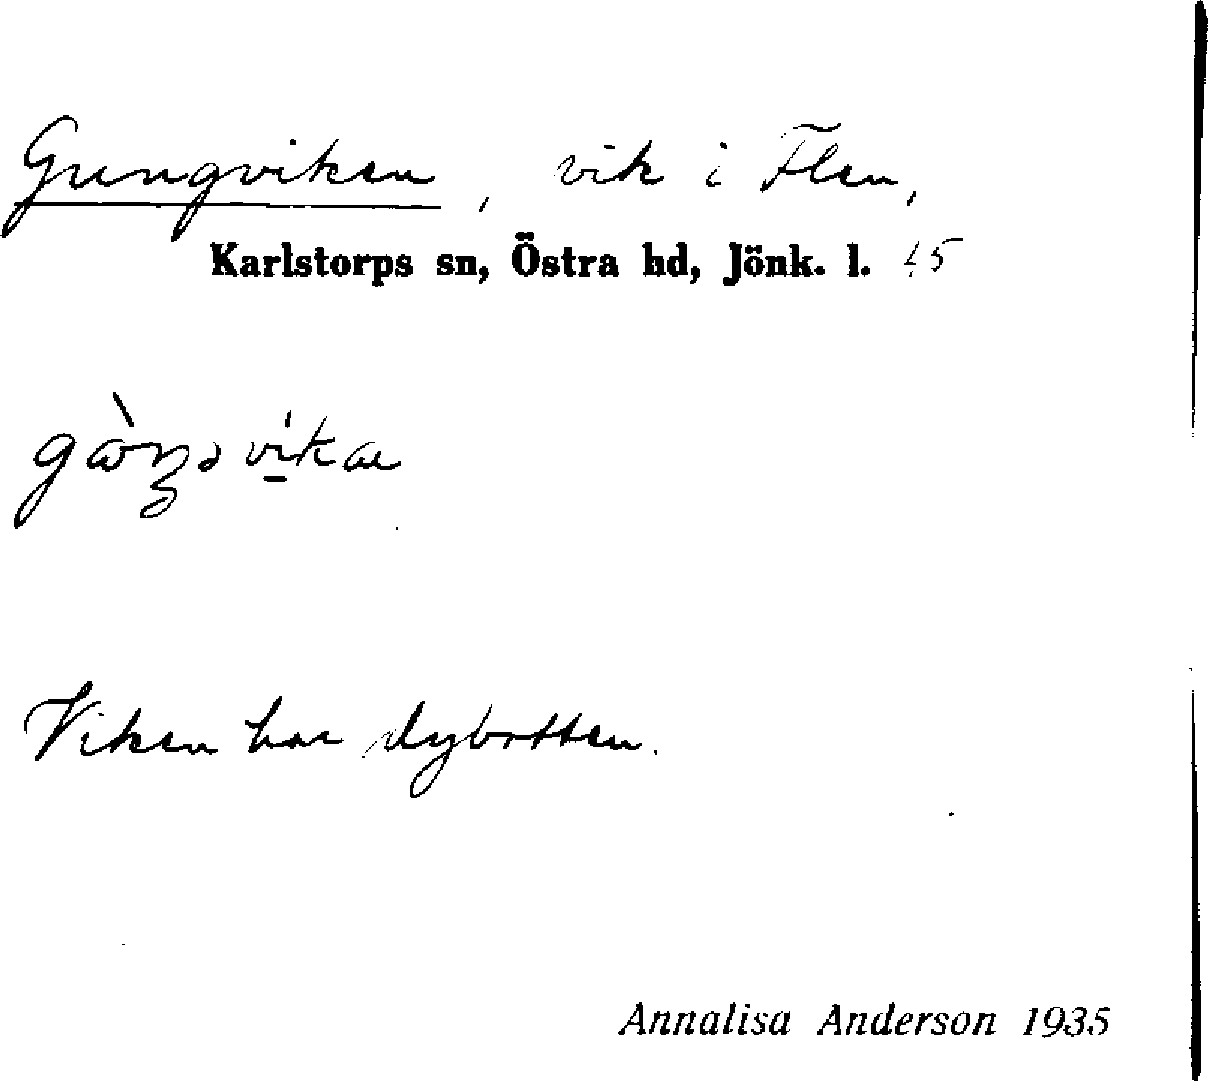 Gungviken, vik i Flen,
Karlstorps sn, Östra hd, Jönk. l. 45
Viken har dybotten.
Annalisa Anderson 1935